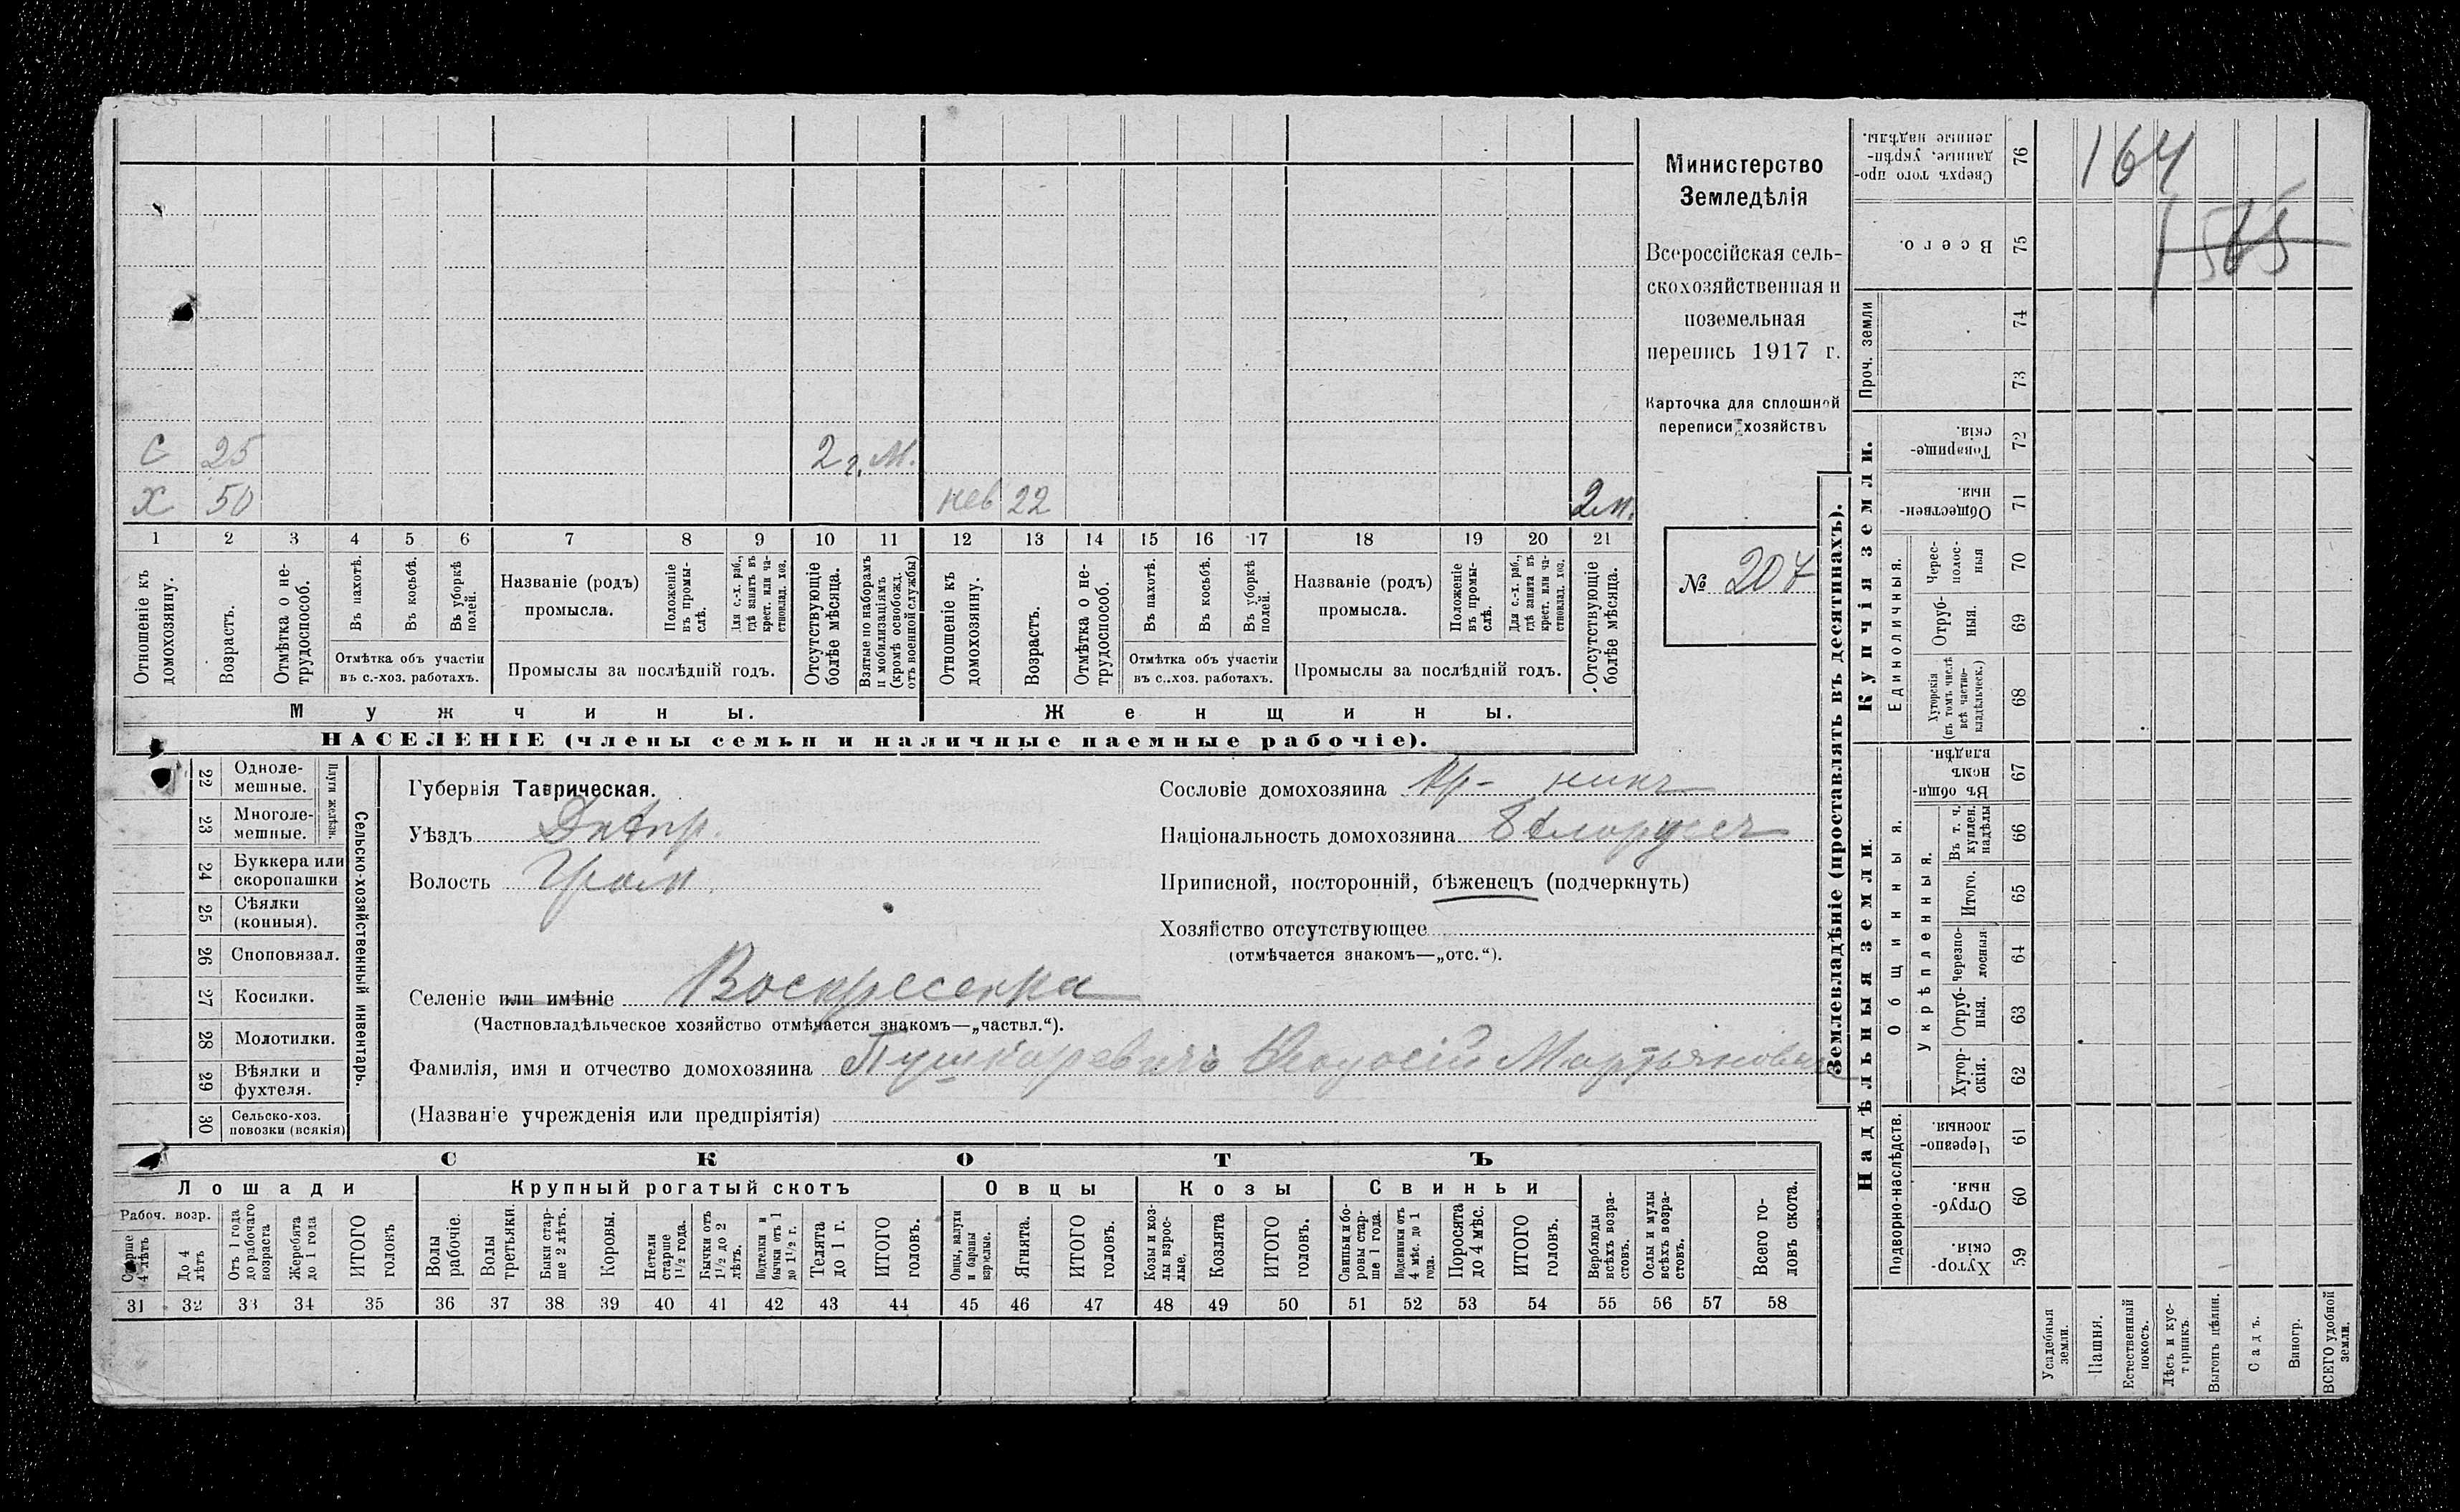 С 25 2 г. М.
Х 50 нев 22 2 м.
1 2 3 4 5 6 7 8 9 10 11 12 13 14 15 16 17 18 19 20 21
Отношеніе къ домохозяину.
Возрастъ.
Отмѣтка о не-трудоспособ.
Въ пахотѣ.
Въ косьбѣ.
Въ уборкѣ полей.
Отмѣтка объ участіи
въ с.-хоз. работахъ.
Названіе (родъ)
промысла.
Положеніе въ промы-слѣ.
Для с.-х. раб., гдѣ занятъ въ крест. или ча-стновлад. хоз.
Промыслы за послѣдній годъ.
Отсутствующіе болѣе мѣсяца.
Взятые по наборамъ и мобилизаціямъ (кромѣ освобожд. отъ военной службы)
Отношеніе къ домохозяину.
Возрастъ.
Отмѣтка о не-трудоспособ.
Въ пахотѣ.
Въ косьбѣ.
Въ уборкѣ полей.
Отмѣтка объ участіи
въ с.-хоз. работахъ.
Названіе (родъ)
промысла.
Положеніе въ промы-слѣ.
Для с.-х. раб., гдѣ занята въ крест. или ча-стновлад. хоз.
Промыслы за послѣдній годъ.
Отсутствующіе болѣе мѣсяца.
Мужчины. Женщины.
НАСЕЛЕНІЕ (члены семьи и наличные наемные рабочіе).
Министерство
Земледѣлія
Всероссійская сель-
скохозяйственная и
поземельная
перепись 1917 г.
Карточка для сплошной
переписи хозяйствъ
№ 207
22 Одноле-мешные.
23 Многоле-мешные.
Плуги желѣзн.
24 Буккера или скоропашки
25 Сѣялки (конныя).
26 Сноповязал.
27 Косилки.
28 Молотилки.
29 Вѣялки и фухтеля.
30 Сельско-хоз. повозки (всякія)
Сельско-хозяйственный инвентарь.
Губернія Таврическая.
Уѣздъ Днѣпр.
Волость
Селеніе или имѣніе Воскресенка
(Частновладѣльческое хозяйство отмѣчается знакомъ—„частвл.“).
Фамилія, имя и отчество домохозяина Пушкаревичъ Ѳеодосій Мартьянович
(Названіе учрежденія или предпріятія)
Сословіе домохозяина кр-нинъ
Національность домохозяина Бѣлоруссъ
Приписной, посторонній, бѣженецъ (подчеркнуть)
Хозяйство отсутствующее
(отмѣчается знакомъ—„отс.“).
СКОТЪ
Лошади Крупный рогатый скотъ Овцы Козы Свиньи
Рабоч. возр.
Старше 4 лѣтъ
До 4 лѣтъ
Отъ 1 года до рабочаго возраста
Жеребята до 1 года
ИТОГО головъ
Волы рабочіе.
Волы третьяки.
Быки стар-ше 2 лѣтъ.
Коровы.
Нетели старше 1½ года.
Бычки отъ 1½ до 2 лѣтъ.
Подтелки и бычки отъ 1 до 1½ г.
Телята до 1 г.
ИТОГО головъ.
Овцы, валухи и бараны взрослые.
Ягнята.
ИТОГО головъ.
Козы и коз-лы взрос-лые.
Козлята
ИТОГО головъ.
Свиньи и бо-ровы стар-ше 1 года.
Подсвинки отъ 4 мѣс. до 1 года.
Поросята до 4 мѣс.
ИТОГО головъ.
Верблюды всѣхъ возра-стовъ.
Ослы и мулы всѣхъ возра-стовъ.
Всего го-ловъ скота.
31 32 33 34 35 36 37 38 39 40 41 42 43 44 45 46 47 48 49 50 51 52 53 54 55 56 57 58
Землевладѣніе (проставлять въ десятинахъ).
Надѣльныя земли. Купчія земли. Проч. земли
Подворно-наслѣдств.
Общинныя.
Укрѣпленныя.
Единоличныя.
Сверхъ того про-данные, укрѣп-ленные надѣлы. 76 164
Всего. 75 1565
74
73
Товарище-скія. 72
Обществен-ныя. 71
Черес-полос-ныя 70
Отруб-ныя. 69
Хуторскія (въ томъ числѣ всѣ частно-владѣльческ.) 68
Въ общи-номъ владѣн. 67
Въ т. ч. куплен. надѣлы 66
Итого. 65
Черезпо-лосныя 64
Отруб-ныя. 63
Хутор-скія. 62
Черезпо-лосныя. 61
Отруб-ныя. 60
Хутор-скія. 59
Усадебныя земли.
Пашня.
Естественный покосъ.
Лѣсъ и кус-тарникъ.
Выгонъ цѣлин.
Садъ.
Виногр.
ВСЕГО удобной земли.